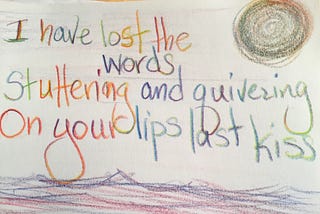 I have lost the
words
Stuttering and quivering
On your lips last kiss